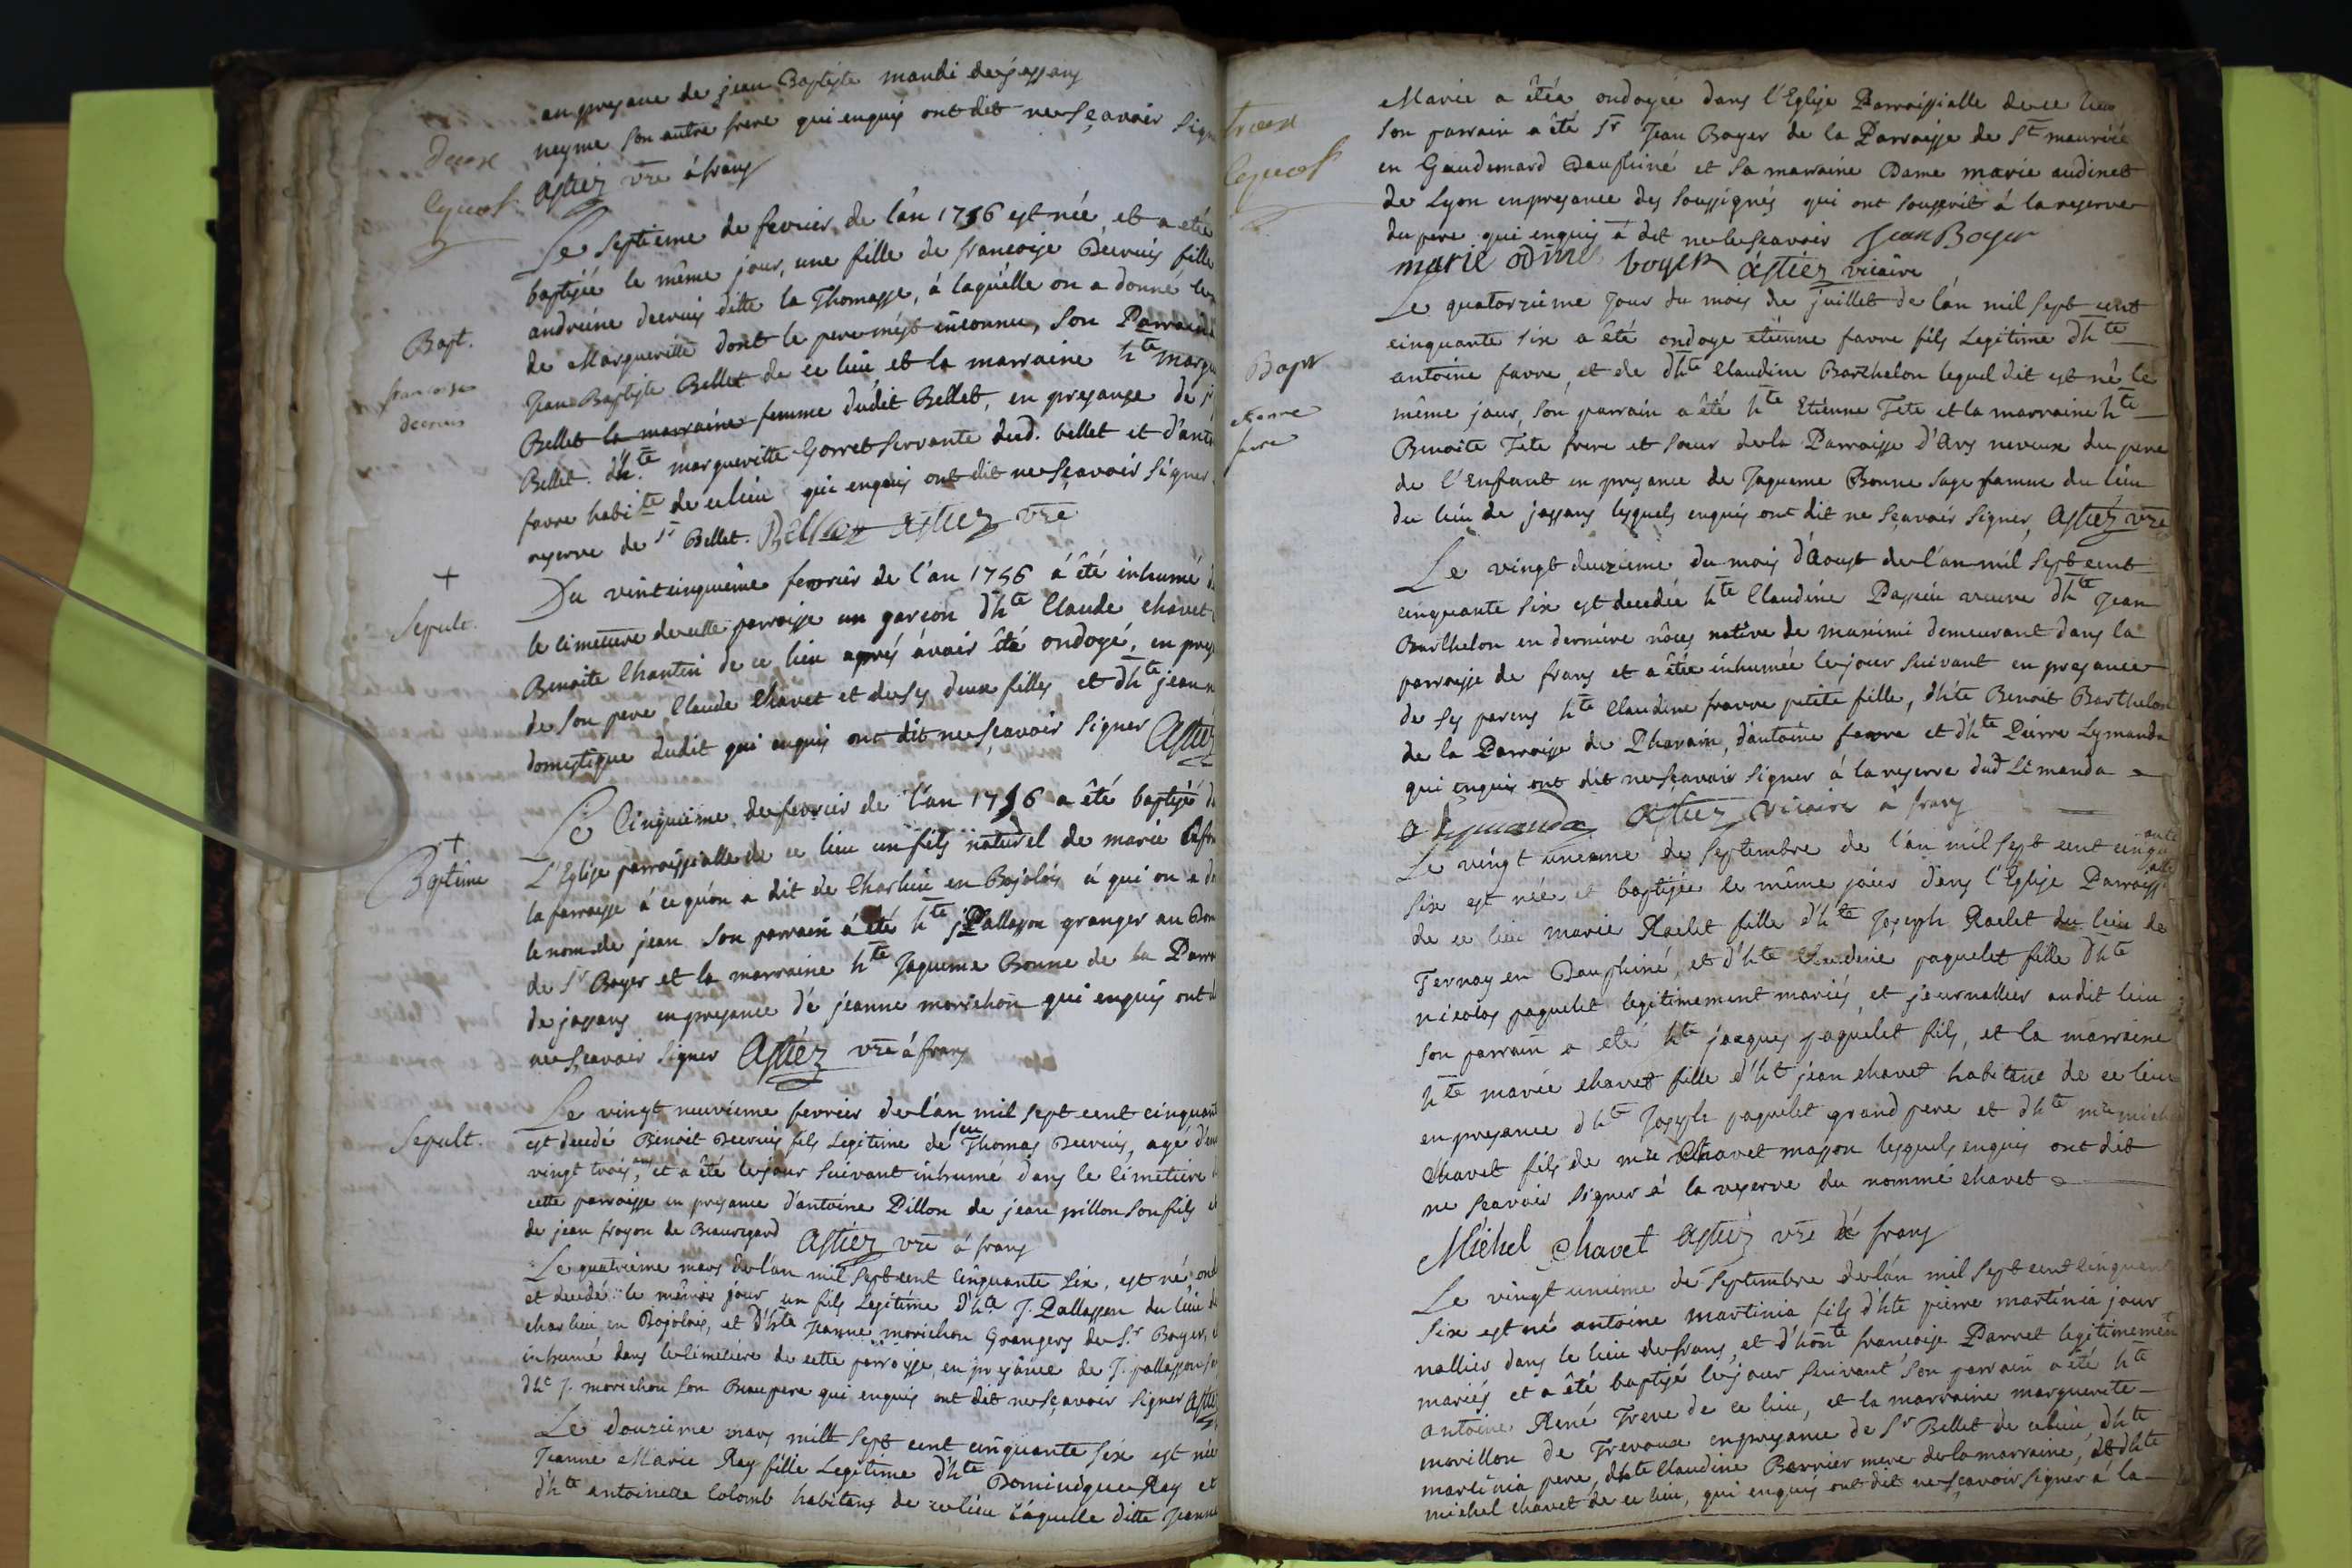 en presance de jean Baptiste mandi de jassans
neyme son autre frere qui enquis ont dit ne sçavoir sign
deux
lequel
astier vre à frans
Le septieme de fevrier de l'an 1756 est née et a eté
baptisée le même jour, une fille de francoise Decruis fille
andriene decruis ditte la Thomasse, à laquelle on a donné le
Bapt.
francoise
decruis
de Margueritte dont le pere m'est inconnu, son Parrain
Jean Baptiste Bellet de ce lieu et la marraine hte margu
Bellet la marraine femme dudit Bellet, en presance de
Bellet. d'hte margueritte Gorret servante dud. bellet et d'anto
favre habite de ce lieu qui enquis ont dit ne sçavoir signer
reserve de sr Bellet. Bellet astier vre
+
Sepult.
Du vint cinquième fevrier de l'an 1756 à été inhumé d
le cimetiere de cette parroisse un garcon d'hte Claude chavet
Benoite Chantin de ce lieu aprés avoir été ondoyé, en pres
de son pere Claude Chavet et de ses deux filles et d'hte jeann
domestique dudit qui enquis ont dit ne sçavoir signer Astier
+
Bptême
Le Cinquieme de fevrier de l'an 1756 a été baptisé d
L'Eglise parroissialle de ce lieu un fils naturel de marie
la parroisse à ce qu'on a dit de Charlieu en Bojolois à qui on a d
le nom de jean son parrain à été hte j Pallasson granger au Dom
de Sr Boyer et la marraine hte Jaqueme Bonne de la Parr
de jassans en presance de jeanne morichon qui enquis ont d
ne sçavoir signer Astier vre à frans
Sepult.
Le vingt neuvieme fevrier de l'an mil sept cent cinquant
est decedé Benoit Decruis fils Legitime de feu Thomas Decruis, agé d'en
vingt trois ans, et a été le jour suivant inhumé dans le cimetiere
cette parroisse en presance d'antoine Pillon de jean pillon son fils et
de jean frayon de Beauregard Astier vre à frans
Le quatrieme mars de l'an mil sept cent cinquante six, est né, ond
et decedé le même jour un fils Legitime d'hte J. Pallasson du lieu de
charlieu en Bojolois, et d'hte Jeanne morichon Grangers de Sr Boyer, et
inhumé dans le cimetiere de cette parroisse, en presance de J. pallasson
d'hte J. morichon son Beaupere qui enquis ont dit ne sçavoir signer Astier
Le douzieme mars mill sept cent cinquante six est née
Jeanne Marie Ray fille Legitime d'hte Dominique Ray et
d'hte antoinette Colomb habitans de ce lieu laquelle ditte Jeanne
Marie a étée ondoyée dans l'Eglise Parroissialle de ce lieu
son parrain a été Sr Jean Boyer de la Parroisse de St maurice
lequel
en Gaudemard Dauphiné et sa marraine Dame marie audinet
de Lyon en presance des soussignés qui ont souscrit à la reserve
du pere qui enquis à dit ne le sçavoir Jean Boyer
marie odinet boyer astier vicaire
Le quatorzieme jour du mois de juillet de l'an mil sept cent
cinquante six a été ondoye etienne favre fils Legitime d'hte
Bapt
etienne
favre
antoine favre, et de d'hte Claudine Barthelon lequel dit est né le
même jour, son parrain a été hte Etienne Tete et la marraine hte
Benoite Tete frere et sœur de la Parroisse d'Ars neveux du pere
de l'Enfant en presance de Jaqueme Bonne sage famme du lieu
du lieu de jassans lesquels enquis ont dit ne sçavoir signer, Astier vre
Le vingt deuxieme du mois d'Aoust de l'an mil sept cent
cinquante six est decedée hte Claudine veuve d'hte Jean
Barthelon en derniere nôces native de maximi demeurant dans la
parroisse de frans et a étée inhumée le jour suivant en presance
de ses parens hte Claudine fravre petite fille, d'hte Benoit Barthelon
de la Parroisse de Pharain, d'antoine favre et d'hte Pierre Lymanda
qui enquis ont dit ne sçavoir signer à la reserve dud Limanda
Lymanda Astier vicaire à frans
Le vingt unieme de septembre de l'an mil sept cent cinquante
six est née et baptisée le même jour dans l'Eglise Parroissialle
de ce lieu marie Raclet fille d'hte Joseph Raclet du lieu de
Ternay en Dauphiné, et d'hte Claudine paquelet fille d'hte
nicolas paquelet legitimement mariés, et journallier audit lieu
son parrain a eté hte jacques paquelet fils, et la marraine
hte marie chavet fille d'ht jean chavet habitant de ce lieu
en presance d'hte Joseph paquelet grand pere et d'hte mre michel
Chavet fils de mre Chavet masson lesquels enquis ont dit
ne sçavoir signer à la reserve du nommé chavet
Michel Chavet Astier vre à frans
Le vingt unieme de septembre de l'an mil sept cent cinquante
six est né antoine martinia fils d'hte pierre martinia jour
nallier dans le lieu de frans, et d'honte francoise Parret legitimement
mariés et a été baptisé le jour suivant son parrain a été hte
antoine René Treve de ce lieu, et la marraine marguerite
morillon de Trevoux en presance de Sr Bellet de ce lieu, d'hte
martinia pere, d'hte Claudine Berrier mere de la marraine, et d'hte
michel chavet de ce lieu, qui enquis ont dit ne sçavoir signer à la